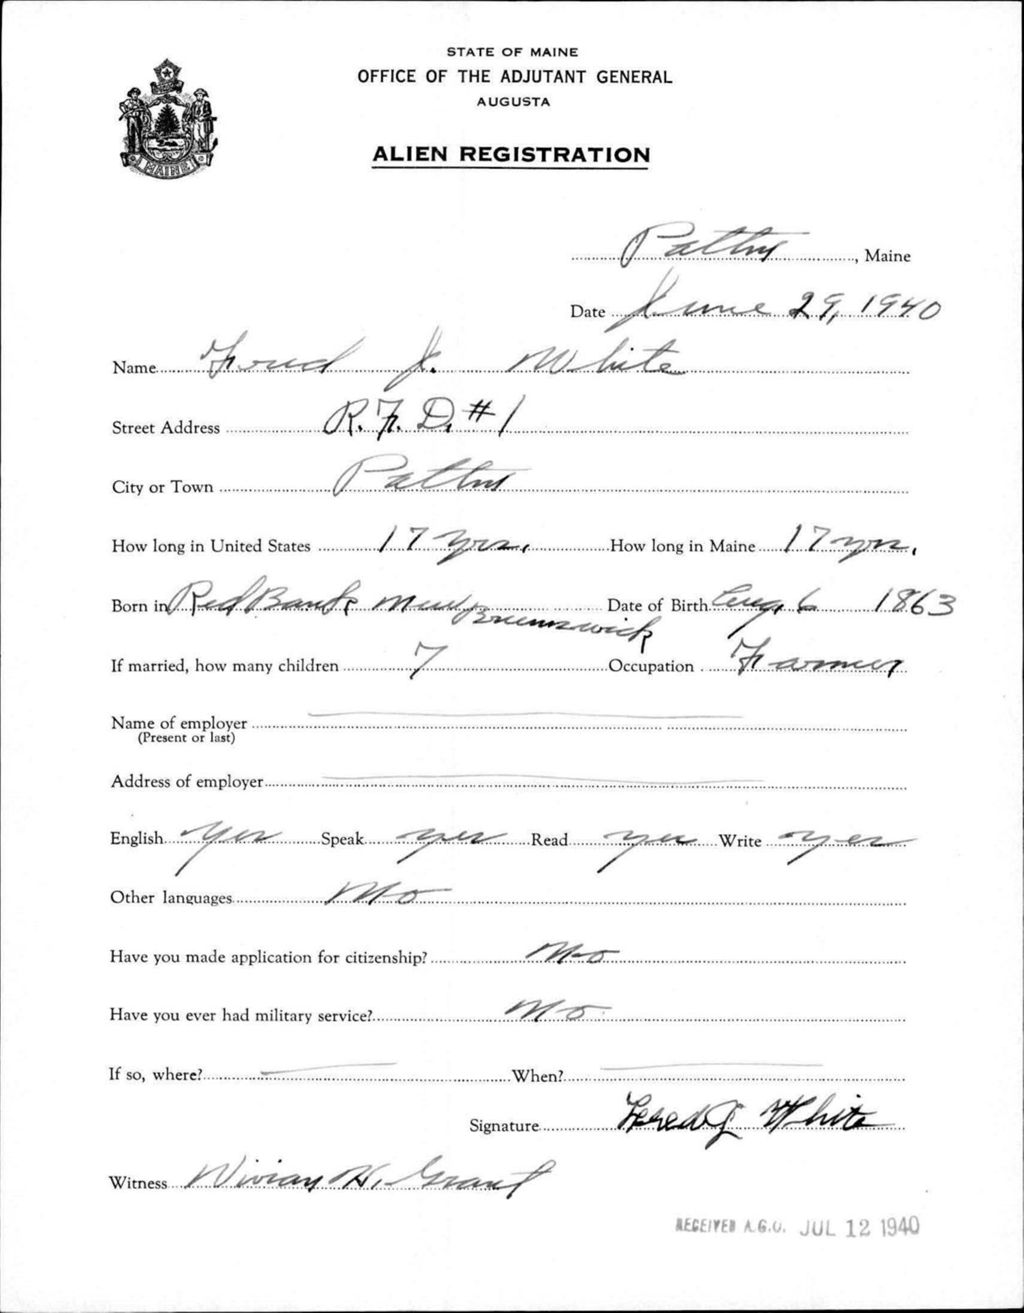 STATE OF MAINE
OFFICE OF THE ADJUTANT GENERAL
AUGUSTA
MAINE
ALIEN REGISTRATION
Patten, Maine
Date June 29, 1940
Name Fred J. White
Street Address R. F. D. #1
City or Town Patten
How long in United States 17 yrs. How long in Maine 17 yrs.
Born in Red Bank New Brunswick Date of Birth Aug. 6 1863
If married, how many children 7 Occupation Farmer
Name of employer
(Present or last)
Address of employer
English Yes Speak yes Read yes Write yes
Other languages No
Have you made application for citizenship? No
Have you ever had military service? No
If so, where? When?
Signature Fered J White
Witness Vivian H. Grant
RECEIVED A.G.O. JUL 12 1940